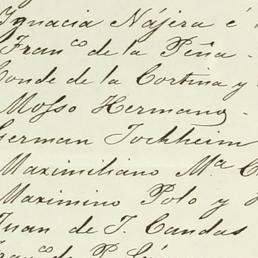 Ignacia Nájera é
Franco de la Peña -
Conde de la Cortina y
Mosso Hermano -
German Tockheim
Maximiliano Ma C
Maximino Polo y
Juan de T. Candas
Franco de P.